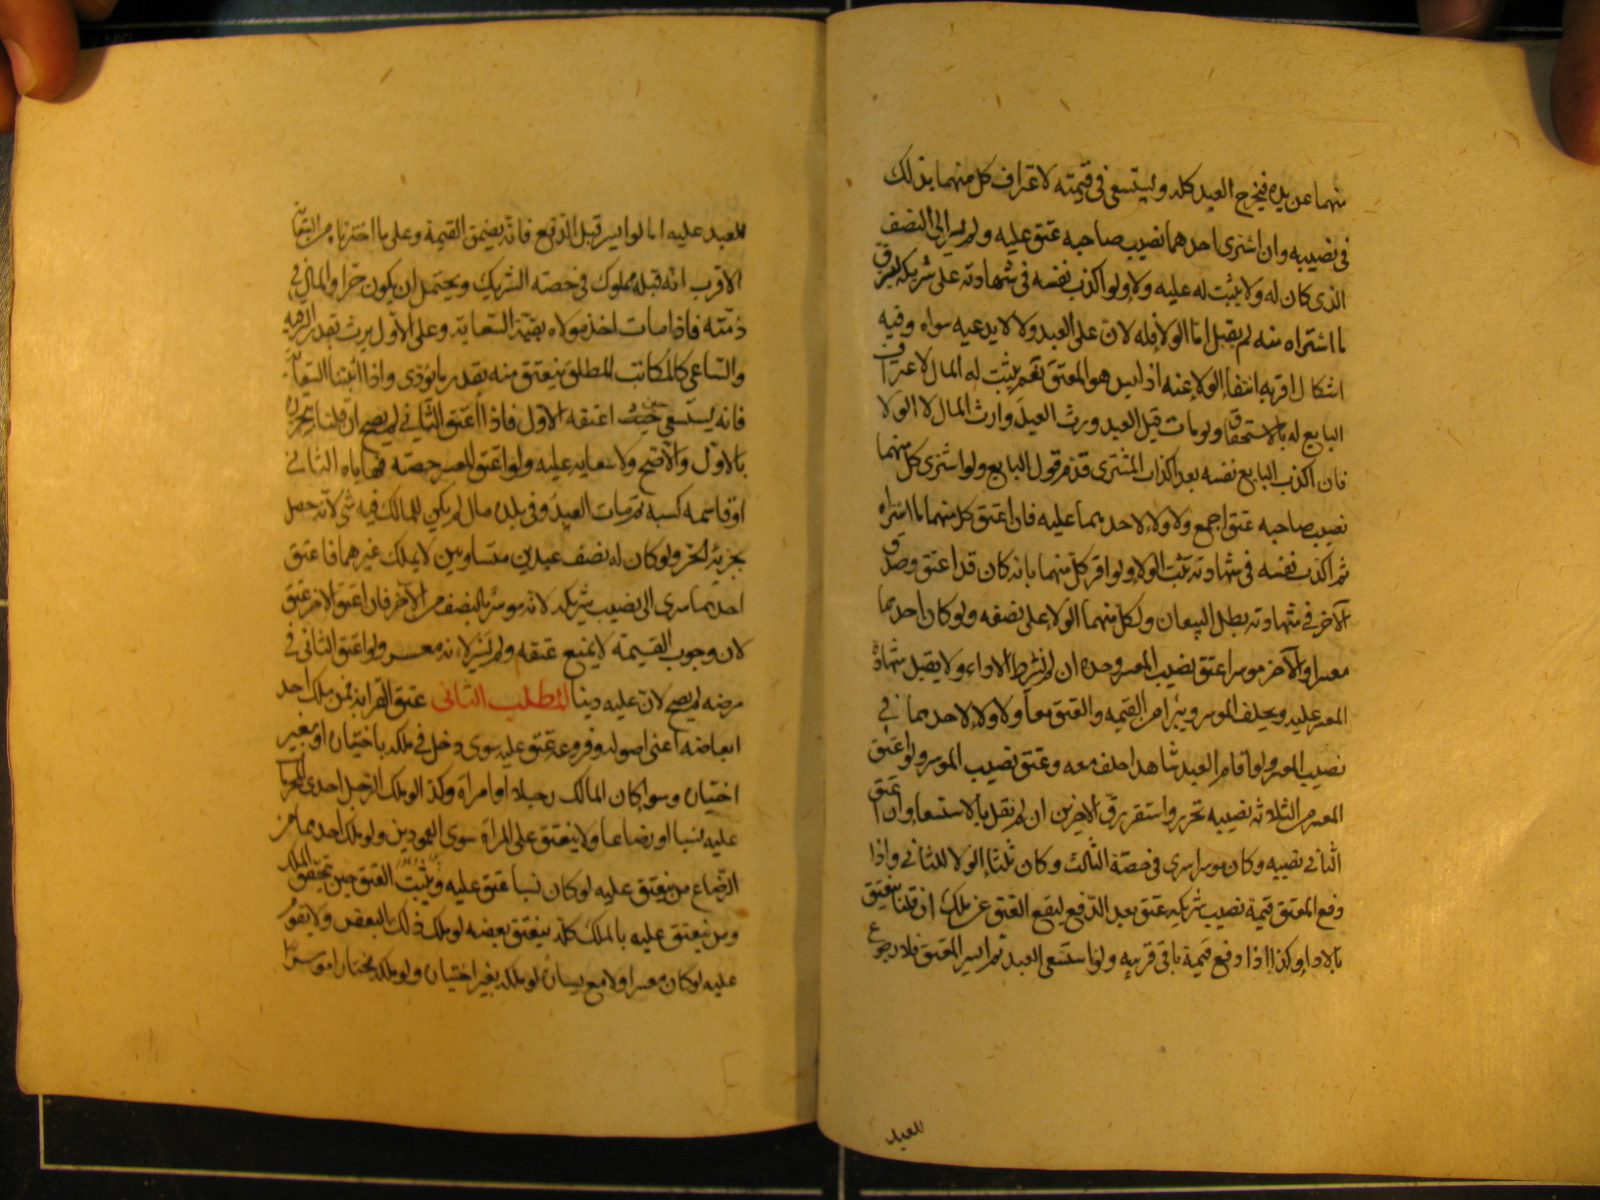 منهما عن يده فيخرج العبد كله ويستسعى في قيمته لاعتراف كل منهما بذلك
في نصيبه وان اشترى احدهما نصيب صاحبه عتق عليه ولم يسر الى النصف
الذى كان له ولا يثبت له عليه ولاء ولو اكذب نفسه في شهادته على شريكه ليسترق
ما اشتراه منه لم يقبل اما الولا فله لان على العبد ولاء لا يدعيه سواه وفيه
اشكال اقربه انتفا الولا عنه اذ ليس هو المعتق نعم يثبت له المال لاعتراف
البايع له بالاستحقاق ولو مات قبل العبد ورث العبد وارث المال لا الولا
فان اكذب البايع نفسه بعد اكذاب المشترى قدم قول البايع ولو اشترى كل منهما
نصيب صاحبه عتق اجمع ولا ولاء لاحدهما عليه فان اعتق كل منهما ما اشتراه
ثم اكذب نفسه في شهادته ثبت الولا ولو اقر كل منهما بانه كان قد اعتق وصدق
الآخر في شهادته بطل البيعان ولكل منهما الولا على نصفه ولو كان احدهما
معسرا والآخر موسرا عتق نصيب المعسر وحده ان لم نشرط الاداء ولا يقبل شهادة
المعسر عليه ويحلف الموسر ويبرأ من القيمه والعتق معا ولا ولاء لاحدهما في
نصيب المعسر ولو اقام العبد شاهدا حلف معه وعتق نصيب الموسر ولو اعتق
المعسر من الثلاثه نصيبه تحرر واستقر رق الآخرين ان لم نقل بالاستسعا وان اعتق
الثاني نصيبه وكان موسرا سرى في حصة الثالث وكان ثلثا الولا للثاني واذا
دفع المعتق قيمة نصيب شريكه عتق بعد الدفع ليقع العتق عن ملك ان قلنا ينعتق
بالاداء وكذا اذا دفع قيمة باقي قريبه ولو استسعى العبد ثم ايسر المعتق فلا رجوع
للعبد
للعبد عليه اما لو ايسر قبل الدفع فانه يضمن القيمة وعلى ما اخترناه من السعاية
الاقرب انه قبله مملوك في حصته الشريك ويحتمل ان يكون حرا والمال في
ذمته فاذا مات اخذ مولاه بقية السعاية وعلى الاول يرث بقدر الحريه
والساعي كالمكاتب المطلق ينعتق منه بقدر ما يؤدى واذا اثبتنا السعاية
فانه يستسعى حين اعتقه الاول فاذا اعتق الثاني لم يصح ان قلنا بتحرره
بالاول والا صح ولا سعايه عليه ولو اعتق المعسر حصته فهاياه الثاني
او قاسمه كسبه ثم مات العبد وفي يده مال لم يكن للمالك فيه شى لانه حصل
بجزئه الحر ولو كان له نصف عبدين متساويين لا يملك غيرهما فاعتق
احدهما سرى الى نصيب شريكه لانه موسر بالنصف من الآخر فان اعتق الآخر عتق
لان وجوب القيمة لا يمنع عتقه ولم يسر لانه معسر ولو اعتق الثاني في
مرضه لم يصح لان عليه دينا المطلب الثاني عتق القرابه فمن ملك احد
ابعاضه اعنى اصوله وفروعه عتق عليه سوى دخل في ملكه باختيار او بغير
اختيار وسوا كان المالك رجلا او امراة وكذا لو ملك الرجل احدى المحرمات
عليه نسبا او رضاعا ولا ينعتق على المراة سوى العمودين ولو ملك احدهما من
الرضاع من ينعتق عليه لو كان نسبا عتق عليه ويثبت العتق حين تحقق الملك
ومن ينعتق عليه بالملك كله ينعتق بعضه لو ملك ذلك البعض ولا يقوم
عليه لو كان معسرا ولا مع يساره لو ملكه بغير اختياره ولو ملكه مختارا موسرا